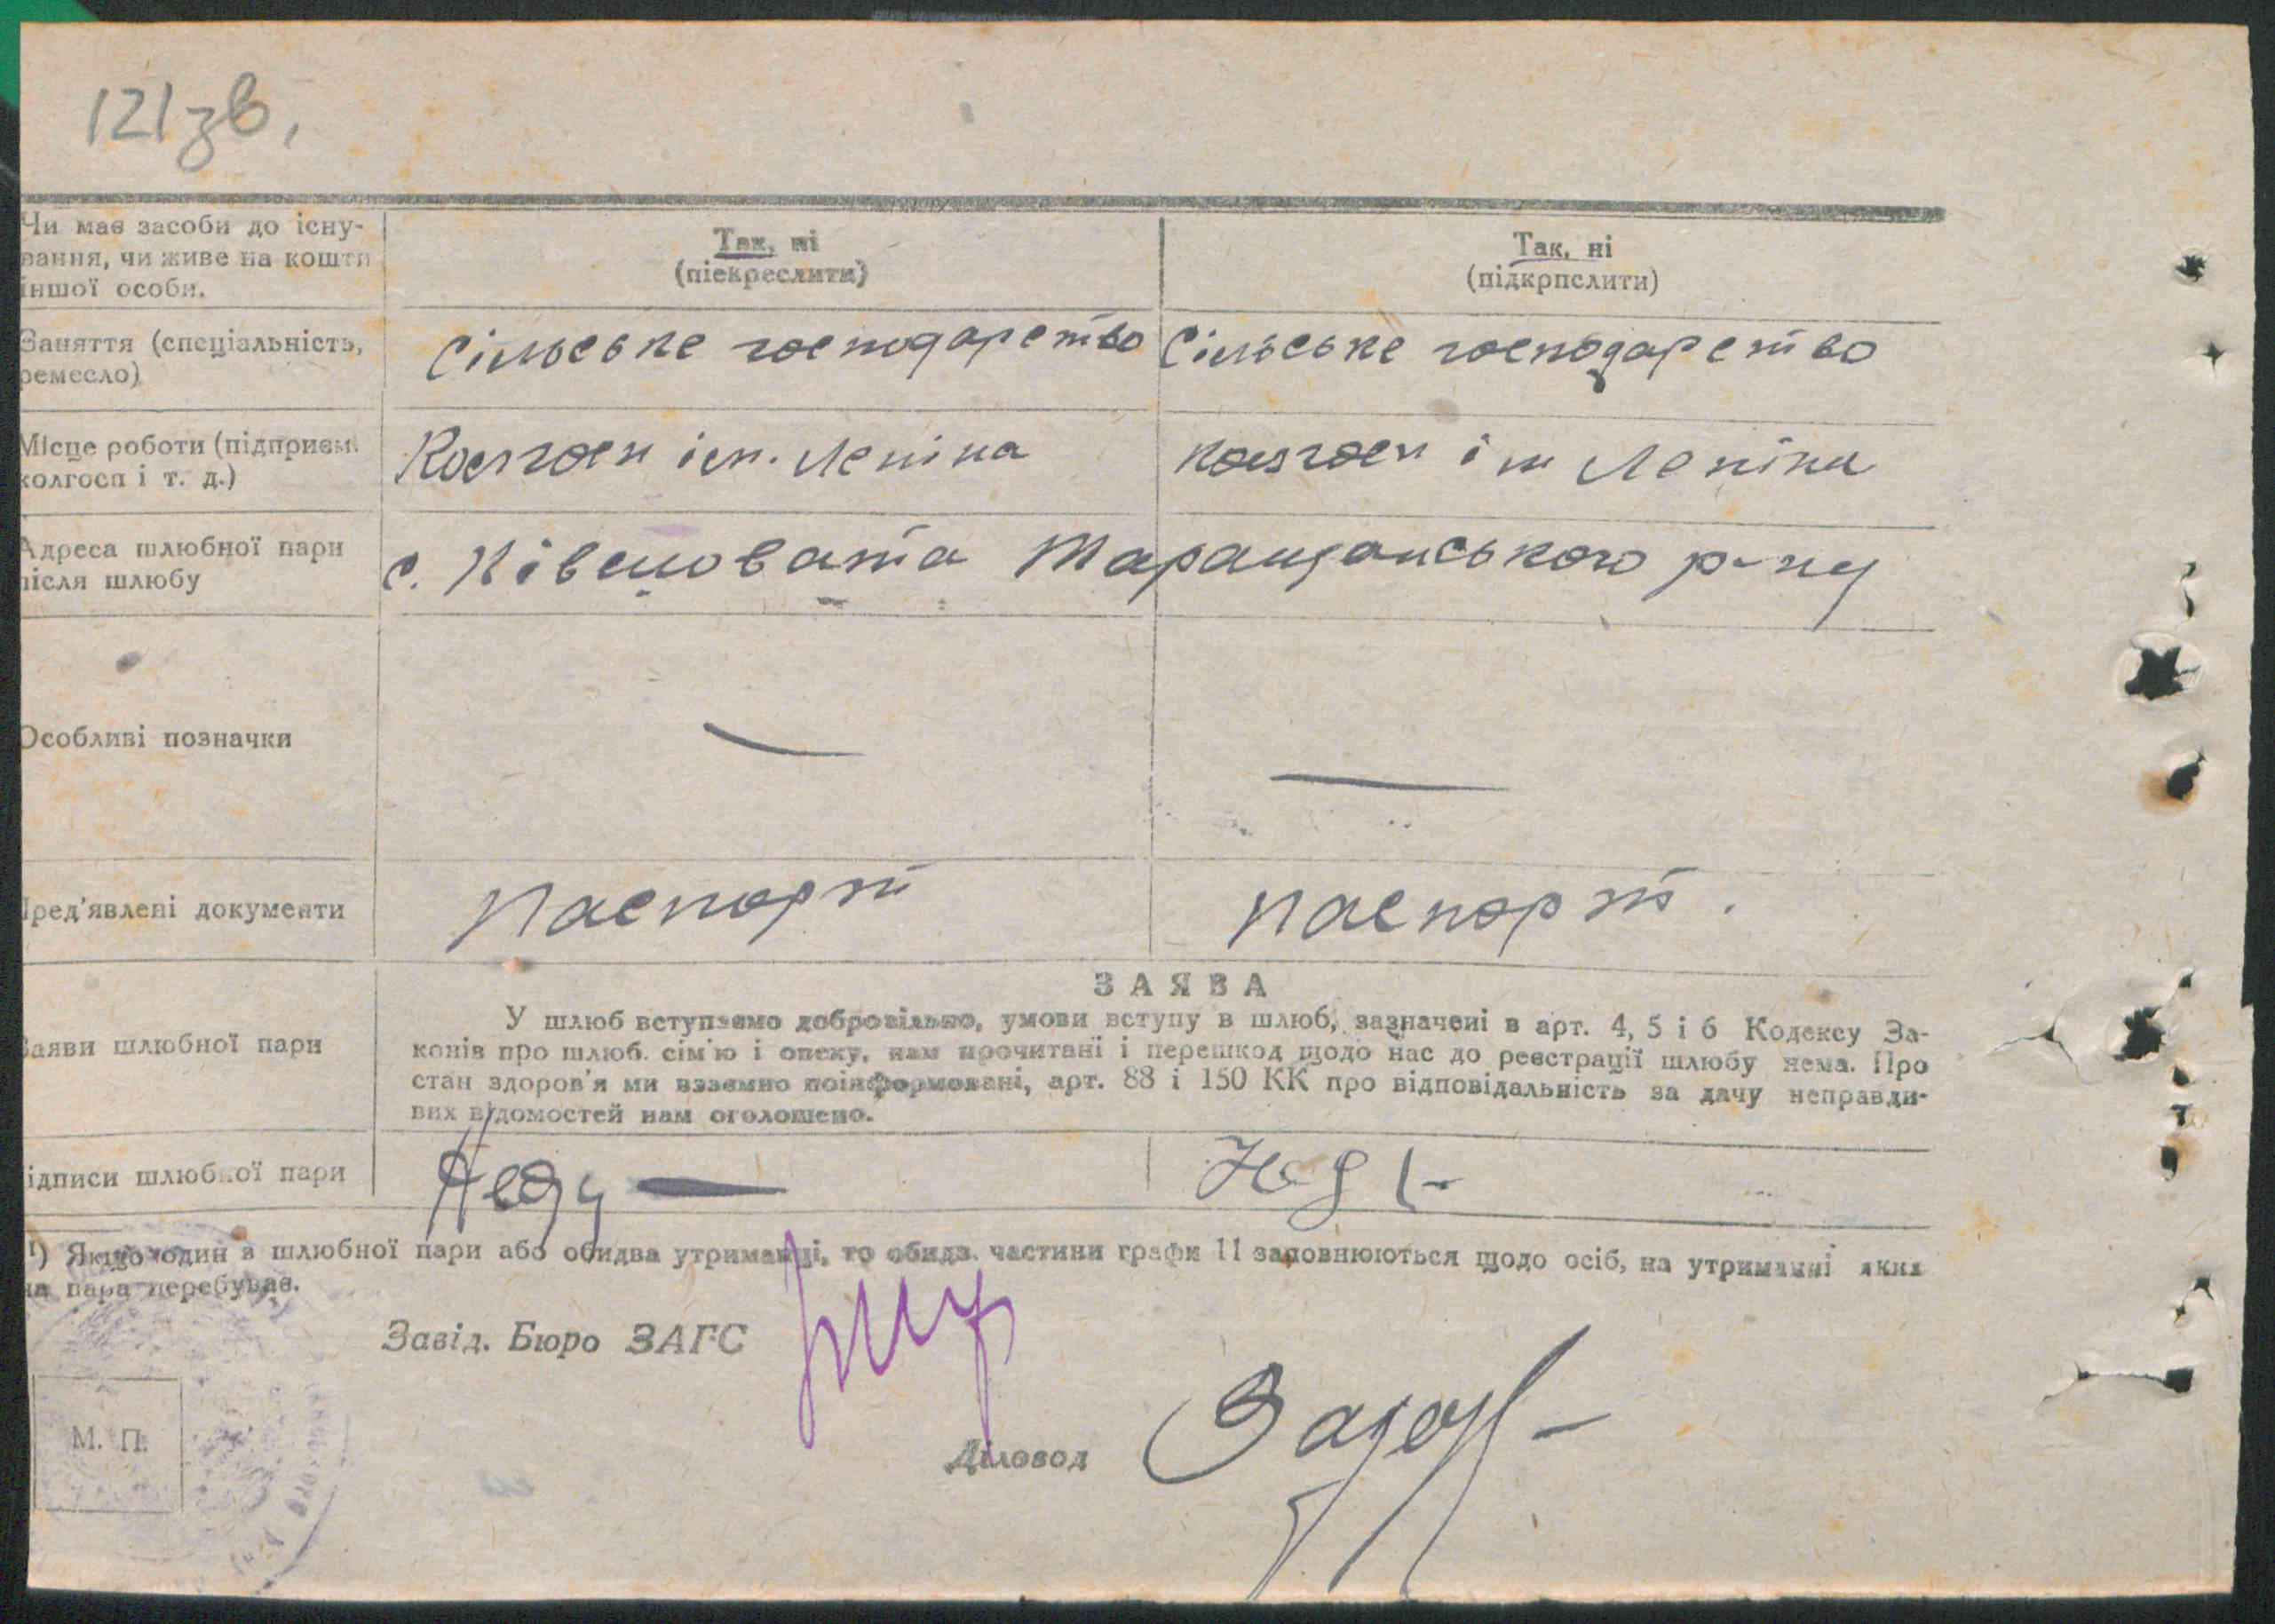 121зв.
Чи має засоби до існу-
вання, чи живе на кошти
іншої особи.
Так, ні
(піекреслити)
Так, ні
(підкрпслити)
Заняття (спеціальність,
ремесло)
Сільське господарство
Сільське господарство
Місце роботи (підприєм.
колгосп і т. д.)
Колгосп ім. Леніна
колгосп ім Леніна
Адреса шлюбної пари
після шлюбу
с. Ківшовата Таращанського р-ну
Особливі позначки
—
—
Пред'явлені документи
паспорт
паспорт.
ЗАЯВА
Заяви шлюбної пари
У шлюб вступаємо добровільно, умови вступу в шлюб, зазначені в арт. 4, 5 і 6 Кодексу За-
конів про шлюб. сім'ю і опеку, нам прочитані і перешкод щодо нас до реєстрації шлюбу нема. Про
стан здоров'я ми взаємно поінформовані, арт. 88 і 150 КК про відповідальність за дачу неправди-
вих відомостей нам оголошено.
ідписи шлюбної пари
¹) Якщо один з шлюбної пари або обидва утриманці, то обидв. частини графи 11 заповнюються щодо осіб, на утриманні яких
на пара перебуває.
Завід. Бюро ЗАГС
М. П.
Діловод